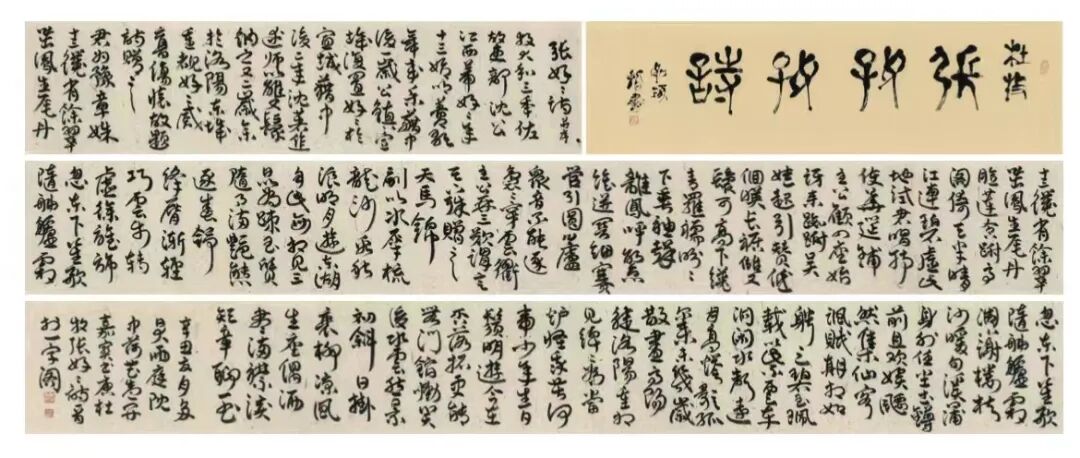 杜牧
張好好詩
張好好詩并序
牧大和三年佐
故吏部沈公
江西幕好好年
十三始以善歌
來樂籍中
後一歲公鎮宣
城復置好好於
宣城籍中
後二年沈著作
述師以雙鬟
納之又二歲余
於洛陽東城
重覩好好感
舊傷懷故題
詩贈之
君為豫章姝
十三纔有餘翠
茁鳳生尾丹
十三纔有餘翠
茁鳳生尾丹
臉蓮含跗高
閣倚天半晴
江連碧虛此
地試君唱特
使華筵鋪
主公顧四座始
訝來踟躕吳
娃起引贊低
徊暎長裾雙
鬟可高下纔過
青羅襦盼盼
下垂袖一聲
離鳳呼繁
弦迸關紐塞
管引圓蘆
衆音不能逐
裊裊穿雲衢
主公再三歎謂言
天下殊贈之
天馬錦
副以水犀梳
龍沙看秋
浪明月遊東湖
自此每相見三
日已為疎玉質
隨月滿艷態
逐春舒
絳脣漸輕
巧雲步轉
虛徐旌旆
忽東下笙歌
隨舳艫霜
忽東下笙歌
隨舳艫霜
凋謝樓樹
沙暖句溪蒲
身外任塵土罇
前且歡娛飄
然集仙客
諷賦期相如
聘之碧玉珮
載以紫雲車
洞閉水聲遠
月高蟾影孤
爾來未幾歲
散盡高陽
徒洛陽重相
見綽綽為當
壚怪我苦何
事少年生白
鬚朋遊今在
否落拓更能
無門館慟哭
後水雲愁景
初斜日掛
衰柳涼風
生座偶洒
盡滿襟淚
短章聊一書
辛丑
杜
牧張好好詩